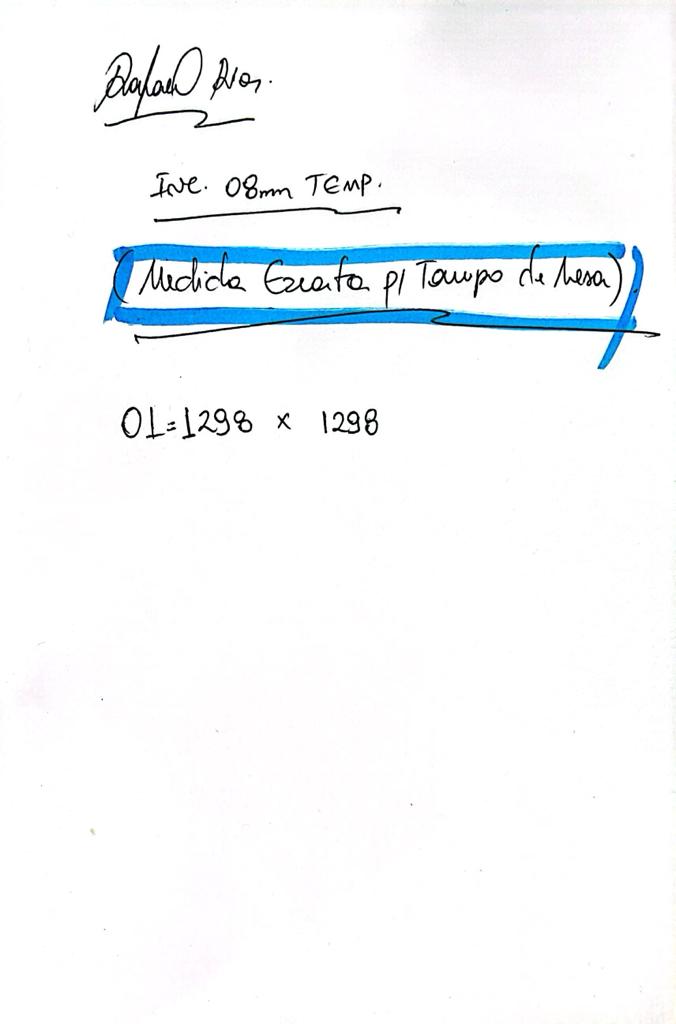 Rafael Dias.
Inc. 08mm TEMP.
(Medida Exata p/ Tampo de Mesa)
01=1298 x 1298